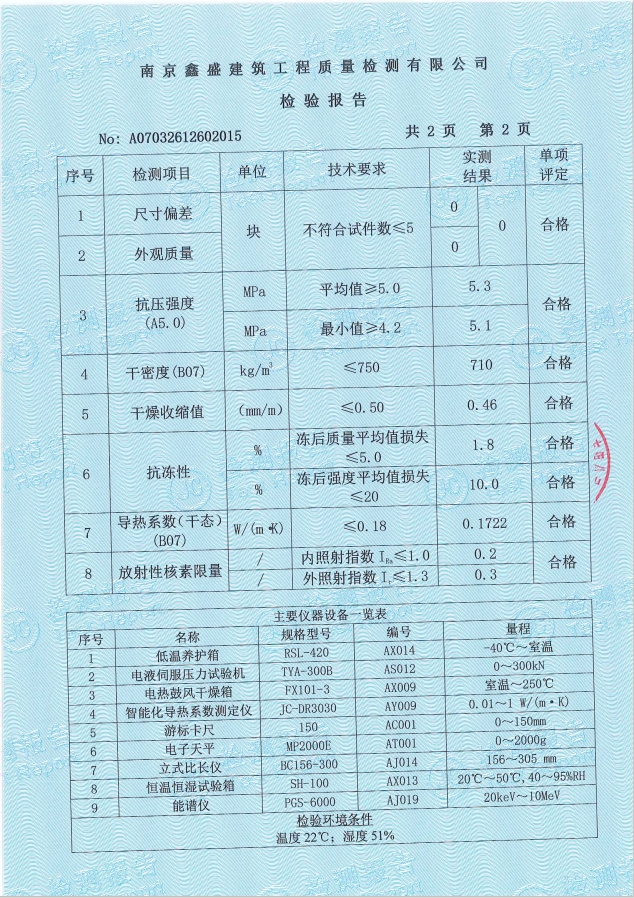 南京鑫盛建筑工程质量检测有限公司
检验报告
No: A07032612602015 共 2 页 第 2 页
序号 检测项目 单位 技术要求 实测结果 单项评定
1 尺寸偏差 块 不符合试件数≤5 0 0 合格
2 外观质量 0
3 抗压强度(A5.0) MPa 平均值≥5.0 5.3 合格
MPa 最小值≥4.2 5.1
4 干密度(B07) kg/m³ ≤750 710 合格
5 干燥收缩值 (mm/m) ≤0.50 0.46 合格
6 抗冻性 % 冻后质量平均值损失≤5.0 1.8 合格
% 冻后强度平均值损失≤20 10.0 合格
7 导热系数(干态)(B07) W/(m·K) ≤0.18 0.1722 合格
8 放射性核素限量 / 内照射指数 IRa≤1.0 0.2 合格
/ 外照射指数 Iγ≤1.3 0.3
主要仪器设备一览表
序号 名称 规格型号 编号 量程
1 低温养护箱 RSL-420 AX014 -40℃~室温
2 电液伺服压力试验机 TYA-300B AS012 0~300kN
3 电热鼓风干燥箱 FX101-3 AX009 室温~250℃
4 智能化导热系数测定仪 JC-DR3030 AY009 0.01~1 W/(m·K)
5 游标卡尺 150 AC001 0~150mm
6 电子天平 MP2000E AT001 0~2000g
7 立式比长仪 BC156-300 AJ014 156~305 mm
8 恒温恒湿试验箱 SH-100 AX013 20℃~50℃,40~95%RH
9 能谱仪 PGS-6000 AJ019 20keV~10MeV
检验环境条件
温度 22℃；湿度 51%